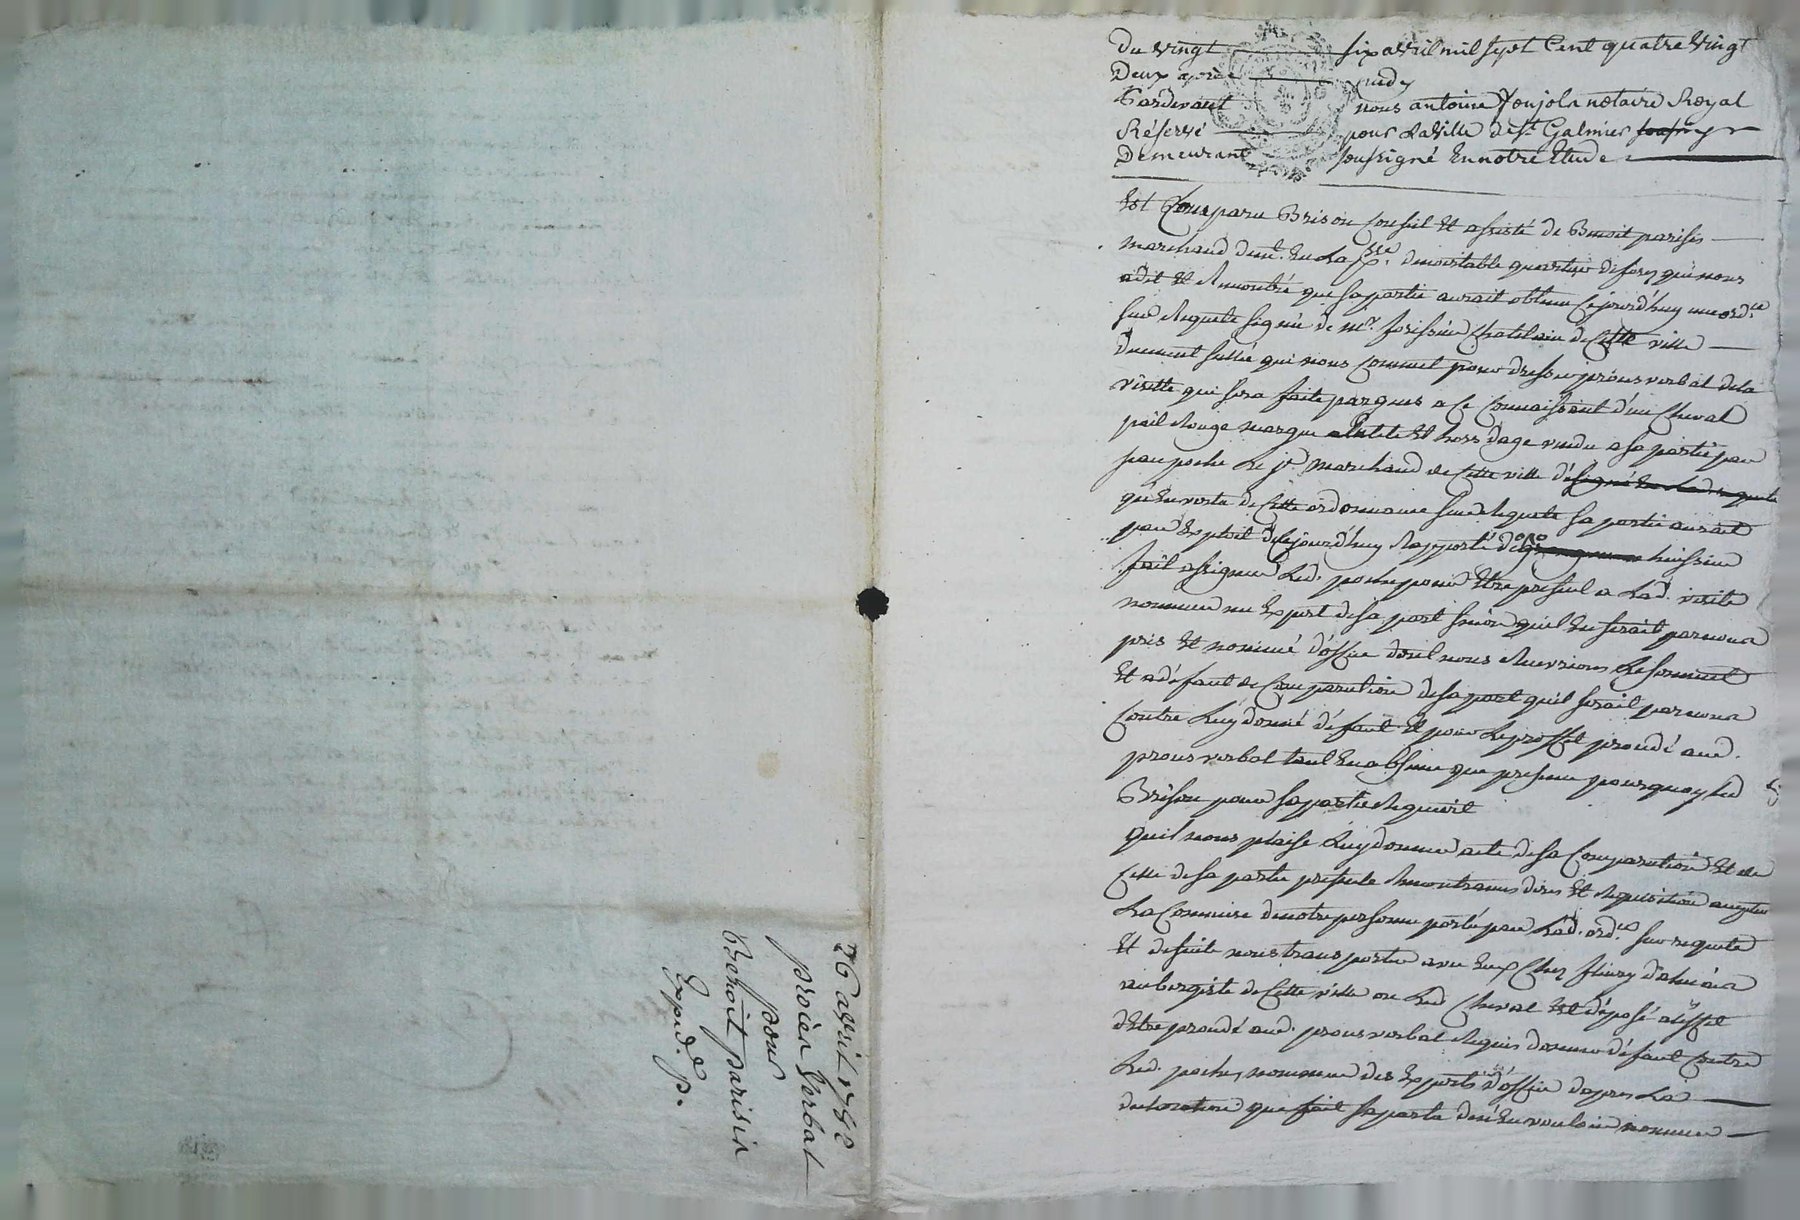 Du vingt six avril mil sept Cent quatre vingt
Deux après midy
Pardevant nous antoine Ponjola notaire Royal
Réservé pour la ville de st Galmier
Demeurant soussigné en notre Etude
Est Comparu Brison Conseil et assisté de Benoit parisis
marchand demt. en la psse. de noirtable quartier de forez qui nous
a dit et Remontré que sa partie aurait obtenu Cejourd'huy une ordce
sur Requete signée de Mr. Chatelain de Cette ville
duement scellé qui nous Commet pour dresser proces verbal de la
visitte qui sera faite par gens a Ce Connaissant d'un Cheval
poil Rouge marque en tete et hors dage vendu a sa partie par
poche le je. marchand de Cette ville
qu'en vertu de Cette ordonnance sur Requete sa partie aurait
par Exploit de Cejourd'huy Rapporté de huissier
fait assigner led. poche pour Etre present a lad. visite
nommer un Expert de sa part sinon quil en serait par nous
pris et nommé d'office dont nous Recevrions le serment
et a défaut de Comparution de sa part quil serait par nous
Contre luy donné défaut et pour le proffit procédé aud.
proces verbal tant en absence que presence pourquoy led
Brison pour sa partie Requiert
quil nous plaise luy donner acte de sa Comparution et de
Celle de sa partie presente Remontrances dires et Requisition accepter
la Commise de notre personne porté par lad. ordce sur requete
et de suite nous transporter avec Eux Chez fleury
aubergiste de Cette ville ou led Cheval est déposé a l'effet
d'Etre procédé aud. proces verbal Requis donner défaut Contre
led. poche, nommer des Experts d'office dapres la
declaration que fait sa partie den En vouloir nommer
26 avril 1782
procès Verbal
pour
Benoit parisis
Expéd. P.